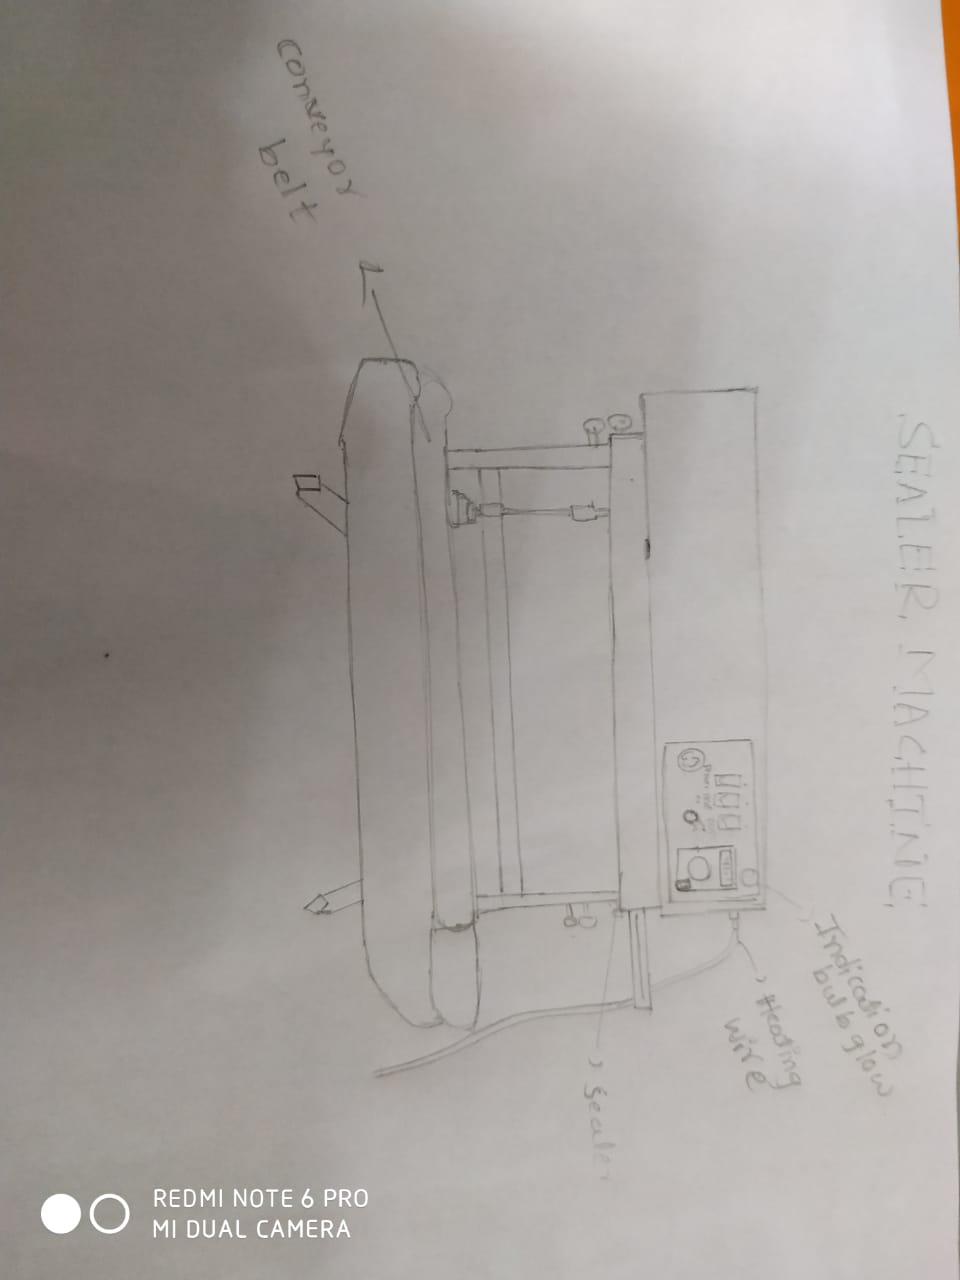 SEALER MACHINE
Indication
bulb glow
Heating
wire
Sealer
conveyor
belt
REDMI NOTE 6 PRO
MI DUAL CAMERA